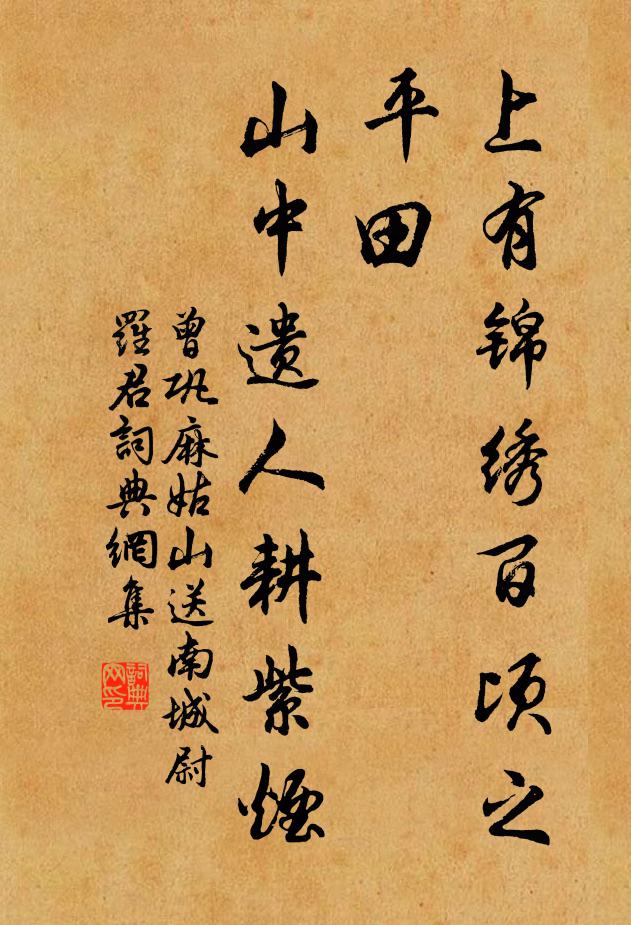 上有锦绣百顷之
平田
山中遗人耕紫烟
曾巩麻姑山送南城尉
羅君詞典網集
詞典
网印